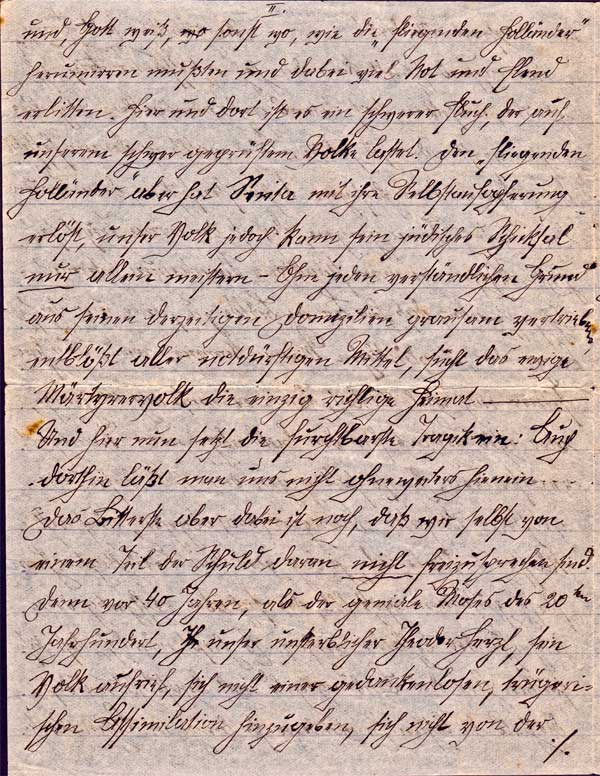 II.
und, Gott weiß, wo sonst wo, wie die "fliegenden Holländer"
herumirren mußten und dabei viel Not und Elend
erlitten. Hier und dort ist es ein schwerer Fluch, der auf
unserem schwer geprüften Volke lastet. Den "fliegenden
Holländer" aber hat Senta mit ihre Selbstaufopferung
erlöst, unser Volk jedoch kann sein jüdisches Schicksal
nur allein meistern – Ohne jeden verständlichen Grund
aus seinen derzeitigen Domizilien grausam vertrieben,
entblößt aller notdürftigen Mittel, sucht das ewige
Märtyrervolk die einzig richtige Heimat ———
Und hier nun setzt die furchtbarste Tragik ein: Auch
dorthin läßt man uns nicht ohneweiters hinein ....
Das Bitterste aber dabei ist noch, daß wir selbst von
einem Teil der Schuld daran nicht freizusprechen sind.
Denn vor 40 Jahren, als der geniale Moses des 20ten
Jahrhundert, unser unsterblicher Theodor Herzl, sein
Volk aufrief, sich nicht einer gedankenlosen, trügeri-
schen Assimilation hinzugeben, sich nicht von der
./.